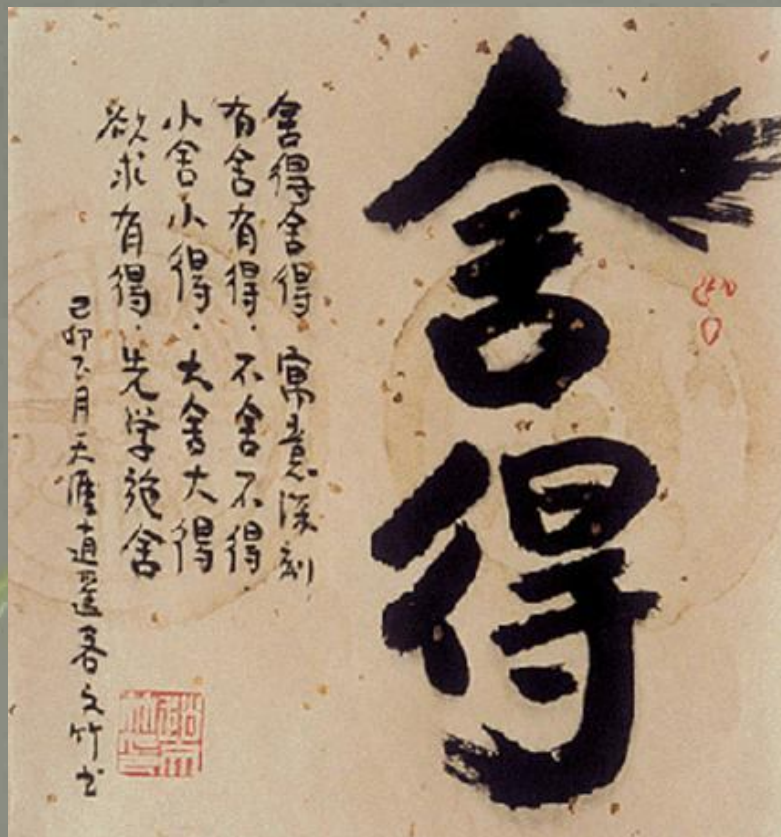 舍得
舍得舍得，寓意深刻，
有舍有得，不舍不得
小舍小得，大舍大得
欲求有得，先学施舍
己卯 月天涯逍遥客文竹书